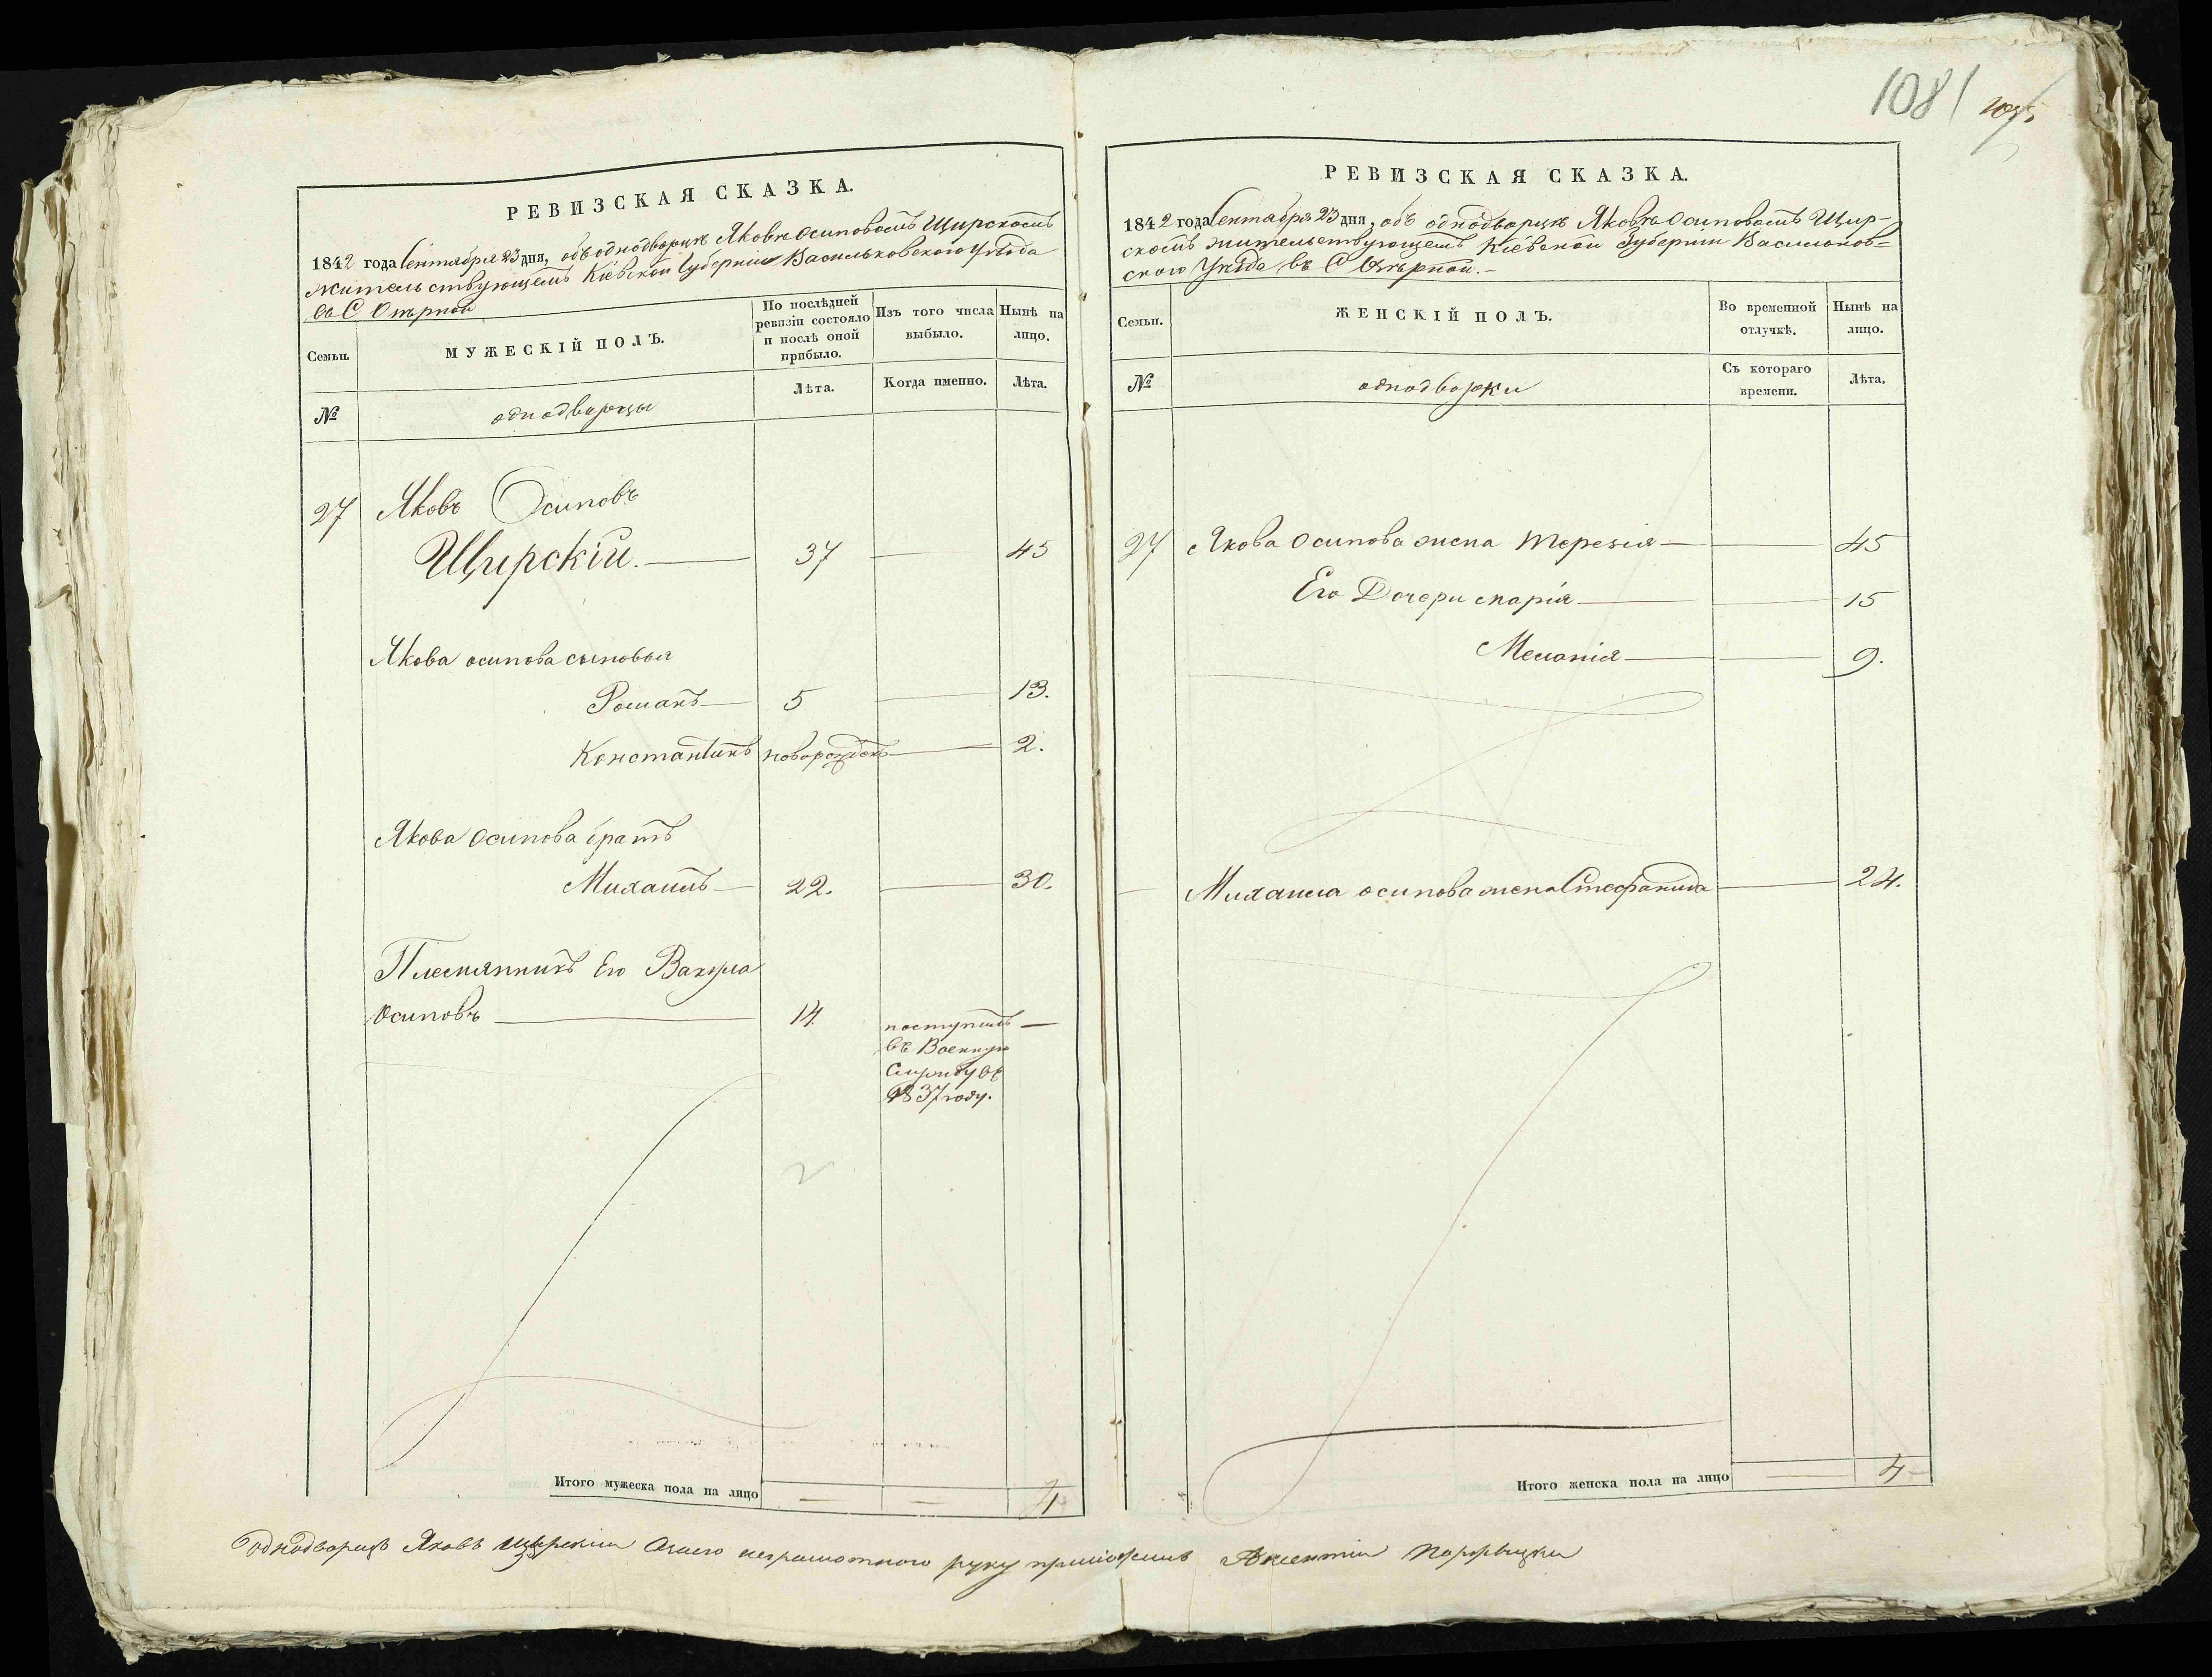 1081
РЕВИЗСКАЯ СКАЗКА.
1842 года Сентября 23 дня, объ однодворцѣ Яковѣ Осиповомъ Щирскомъ
жительствующемъ Кіевской Губерніи Васильковского Уѣзда
въ С Озѣрной
Семьи.
МУЖЕСКІЙ ПОЛЪ.
По послѣдней ревизіи состояло и послѣ оной прибыло.
Изъ того числа выбыло.
Нынѣ на лицо.
№
однодворцы
Лѣта.
Когда именно.
Лѣта.
27 Яковъ Осиповъ
Щирскій. 37 45
Якова осипова сыновья
Романъ 5 13.
Константинъ новорожденъ 2.
Якова Осипова братъ
Михаилъ 22. 30.
Племянникъ Его Вакула
Осиповъ 14. поступилъ
въ Военную
Службу въ
1837 году.
Итого мужеска пола на лицо 4
РЕВИЗСКАЯ СКАЗКА.
1842 года Сентября 23 дня, объ однодворцѣ Яковѣ Осиповомъ Щир-
скомъ жительствующемъ Кіевской Губерніи Васильков-
ского Уѣзда въ С Озѣрной.
Семьи.
ЖЕНСКІЙ ПОЛЪ.
Во временной отлучкѣ.
Нынѣ на лицо.
№
однодворки
Съ котораго времени.
Лѣта.
27 Якова Осипова жена Терезія 45
Его Дочери Марія 15
Меланія 9.
Михаила осипова жена Стефанида 24.
Итого женска пола на лицо 4
Однодворецъ Яковъ Щирскій Азанего неграмотного руку приложилъ